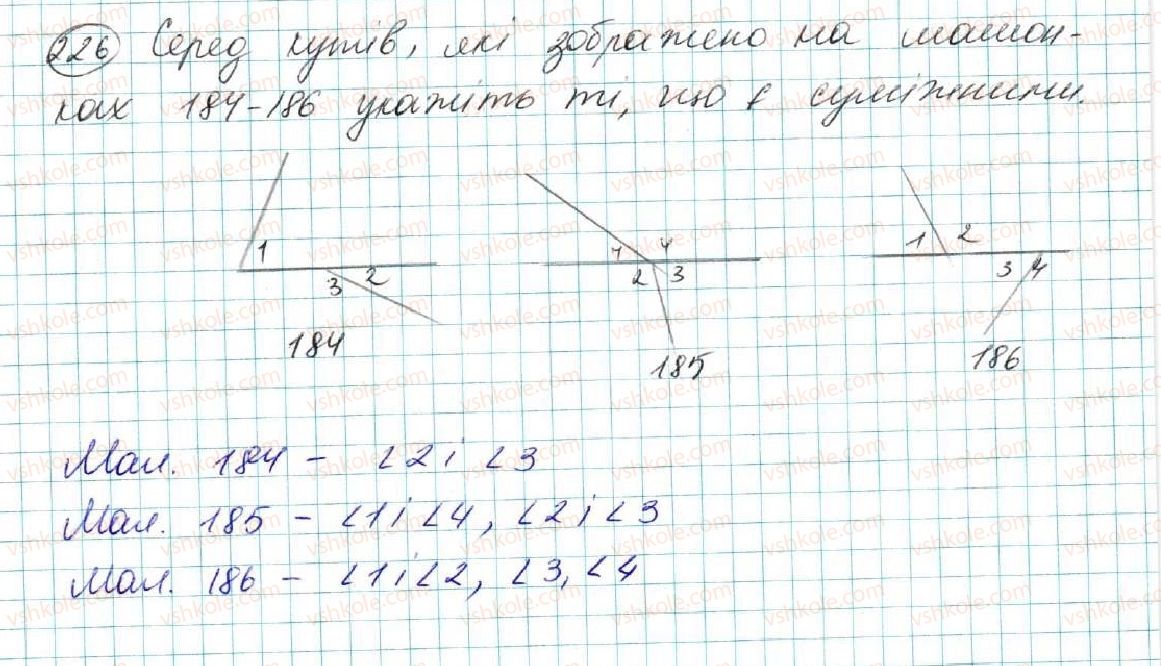 226 Серед кутів, які зображено на малюн-
ках 184-186 укажіть ті, що є суміжними.
1
3 2
184
1 4
2 3
185
1 2
3 4
186
Мал. 184 - ∠2 і ∠3
Мал. 185 - ∠1 і ∠4, ∠2 і ∠3
Мал. 186 - ∠1 і ∠2, ∠3, ∠4
vshkole.com